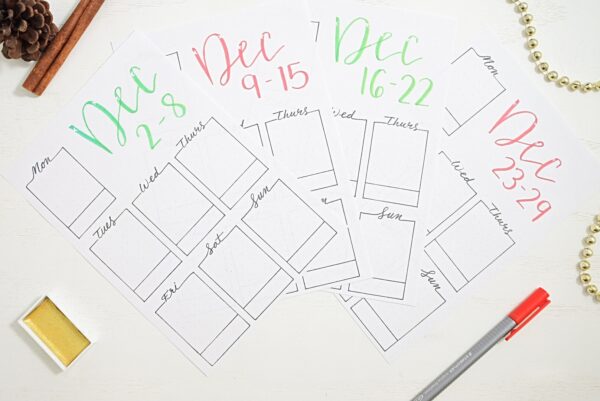 Dec
2-8
Mon
Tues
Wed
Thurs
Fri
Sat
Sun
Dec
9-15
Thurs
Dec
16-22
Wed
Thurs
Sun
Dec
23-29
Mon
Wed
Thurs
Sun